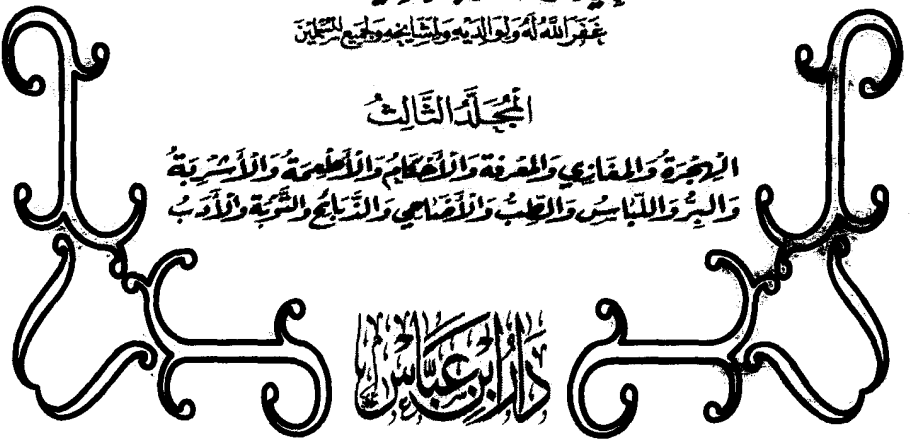 غَفَرَ اللَّهُ لَهُ وَلِوَالِدَيْهِ وَلِمَشَايِخِهِ وَلِجَمِيعِ الْمُسْلِمِينَ
الْمُجَلَّدُ الثَّالِثُ
الْهِجْرَةُ وَالْمَغَازِي وَالْمَعْرِفَةُ وَالْأَحْكَامُ وَالْأَطْعِمَةُ وَالْأَشْرِبَةُ
وَالْبِرُّ وَاللِّبَاسُ وَالطِّبُّ وَالْأَضَاحِي وَالذَّبَائِحُ وَالتَّوْبَةُ وَالْأَدَبُ
دَارُ ابْنِ عَبَّاسٍ